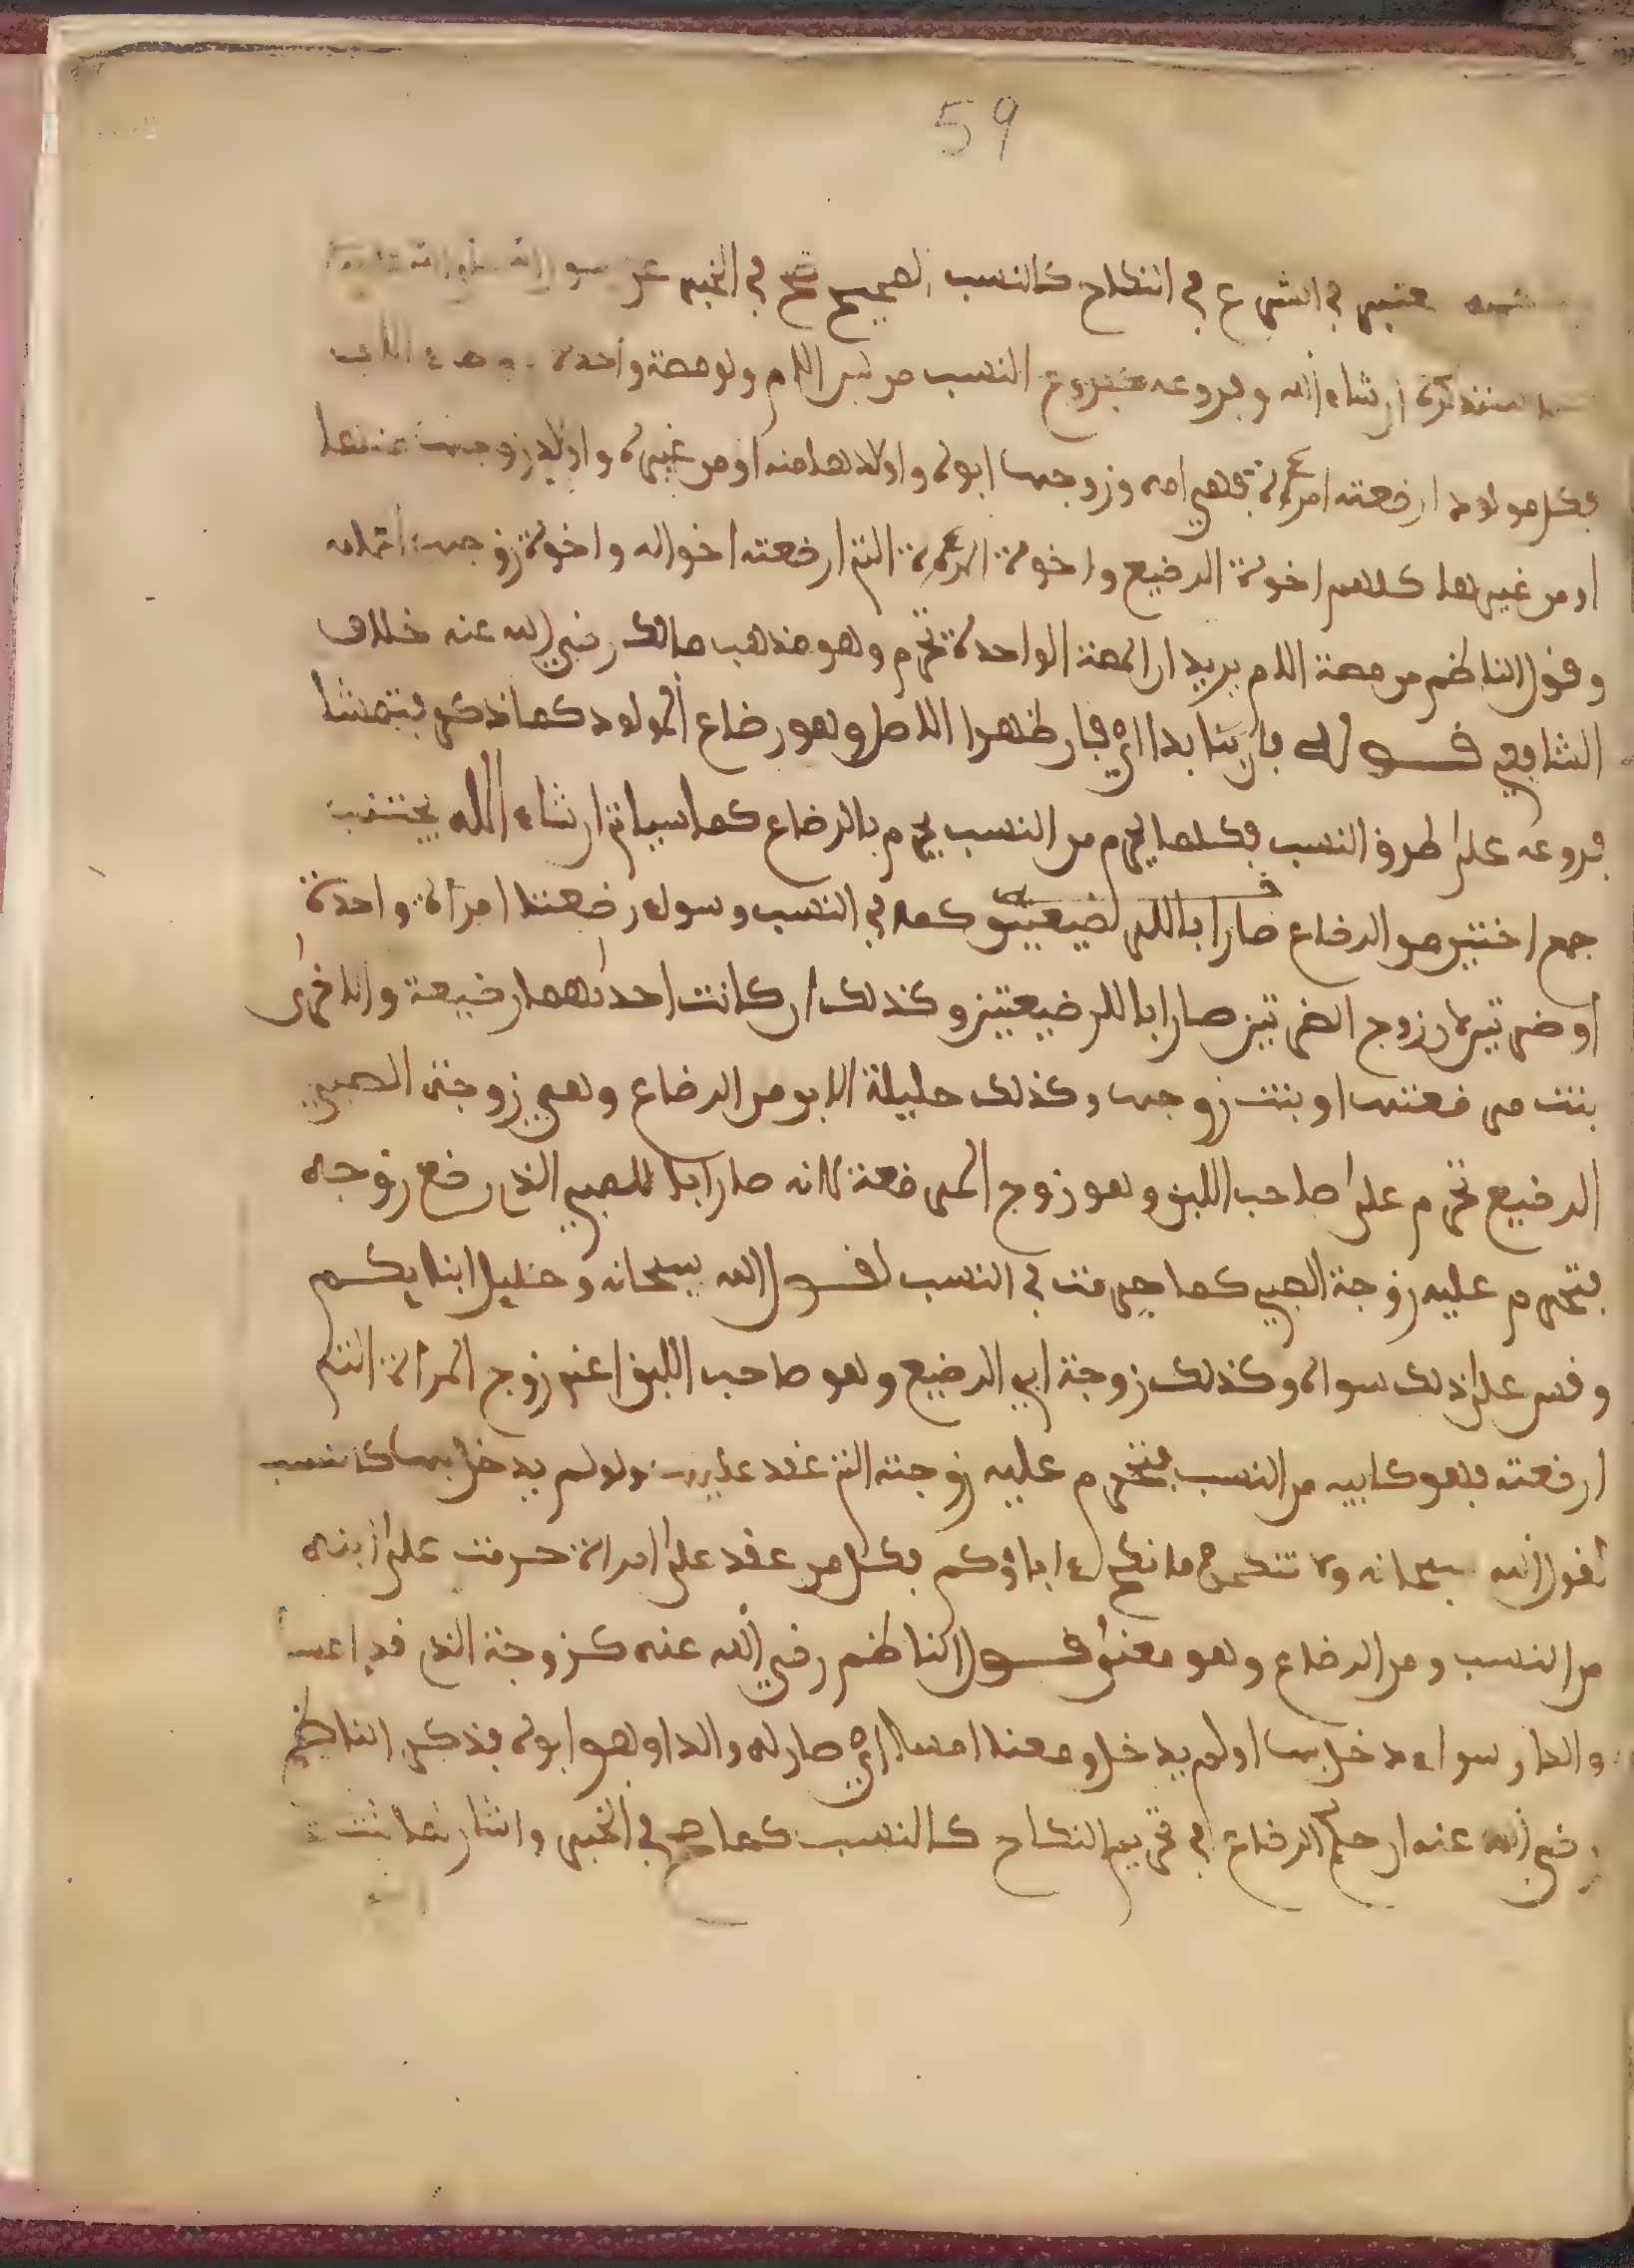 59
معتبر في الشرع في النكاح كالنسب الصحيح صح في الخبر عن
ان شاء الله وفروعه كفروع النسب من لبن الام ولو مصة واحدة
فكل مولود ارضعته امرءة فهي امه وزوجها ابوه واولادها منه او من غيره واولاد زوجها منها
او من غيرها كلهم اخوة الرضيع واخوة المرءة التي ارضعته اخواله واخوة زوجها اعمامه
وقول الناظم من مصة الام يريد ان المصة الواحدة تحرم وهو مذهب مالك رضي الله عنه خلاف
الشافعي قوله بان بنا بدا اي بان ظهر الاصل وهو رضاع المولود كما ذكر فتمشا
فروعه على طرق النسب فكلما يحرم من النسب يحرم بالرضاع كما سياتي ان شاء الله
جمع اختين من الرضاع صار ابا للرضيعتين كما في النسب وسواء رضعتا امراة واحدة
او ضرتين لان زوج الضرتين صار ابا للرضيعتين وكذلك ان كانت احداهما رضيعة والاخرى
بنت مرضعتها او بنت زوجها وكذلك حليلة الابن من الرضاع وهي زوجة الصبي
الرضيع تحرم على صاحب اللبن وهو زوج المرضعة لانه صار ابا للصبي الذي رضع زوجه
فتحرم عليه زوجة الصبي كما حرمت في النسب لقول الله سبحانه وحليل ابنايكم
وقس على ذلك سواه وكذلك زوجة ابي الرضيع وهو صاحب اللبن اعني زوج المراة التي
ارضعته فهو كابيه من النسب فتحرم عليه زوجته التي عقد عليها ولو لم يدخل بها كالنسب
لقول الله سبحانه ولا تنكحوا ما نكح ءاباؤكم فكل من عقد على امراة حرمت على ابنه
من النسب ومن الرضاع وهو معنى قول الناظم رضي الله عنه كزوجة الذي قد
والدا وسواء دخل بها او لم يدخل ومعنا امسا اي صار له والدا وهو ابوه فذكر الناظم
رضي الله عنه ان حكم الرضاع في تحريم النكاح كالنسب كما صح في الخبر واشار بما ثبت